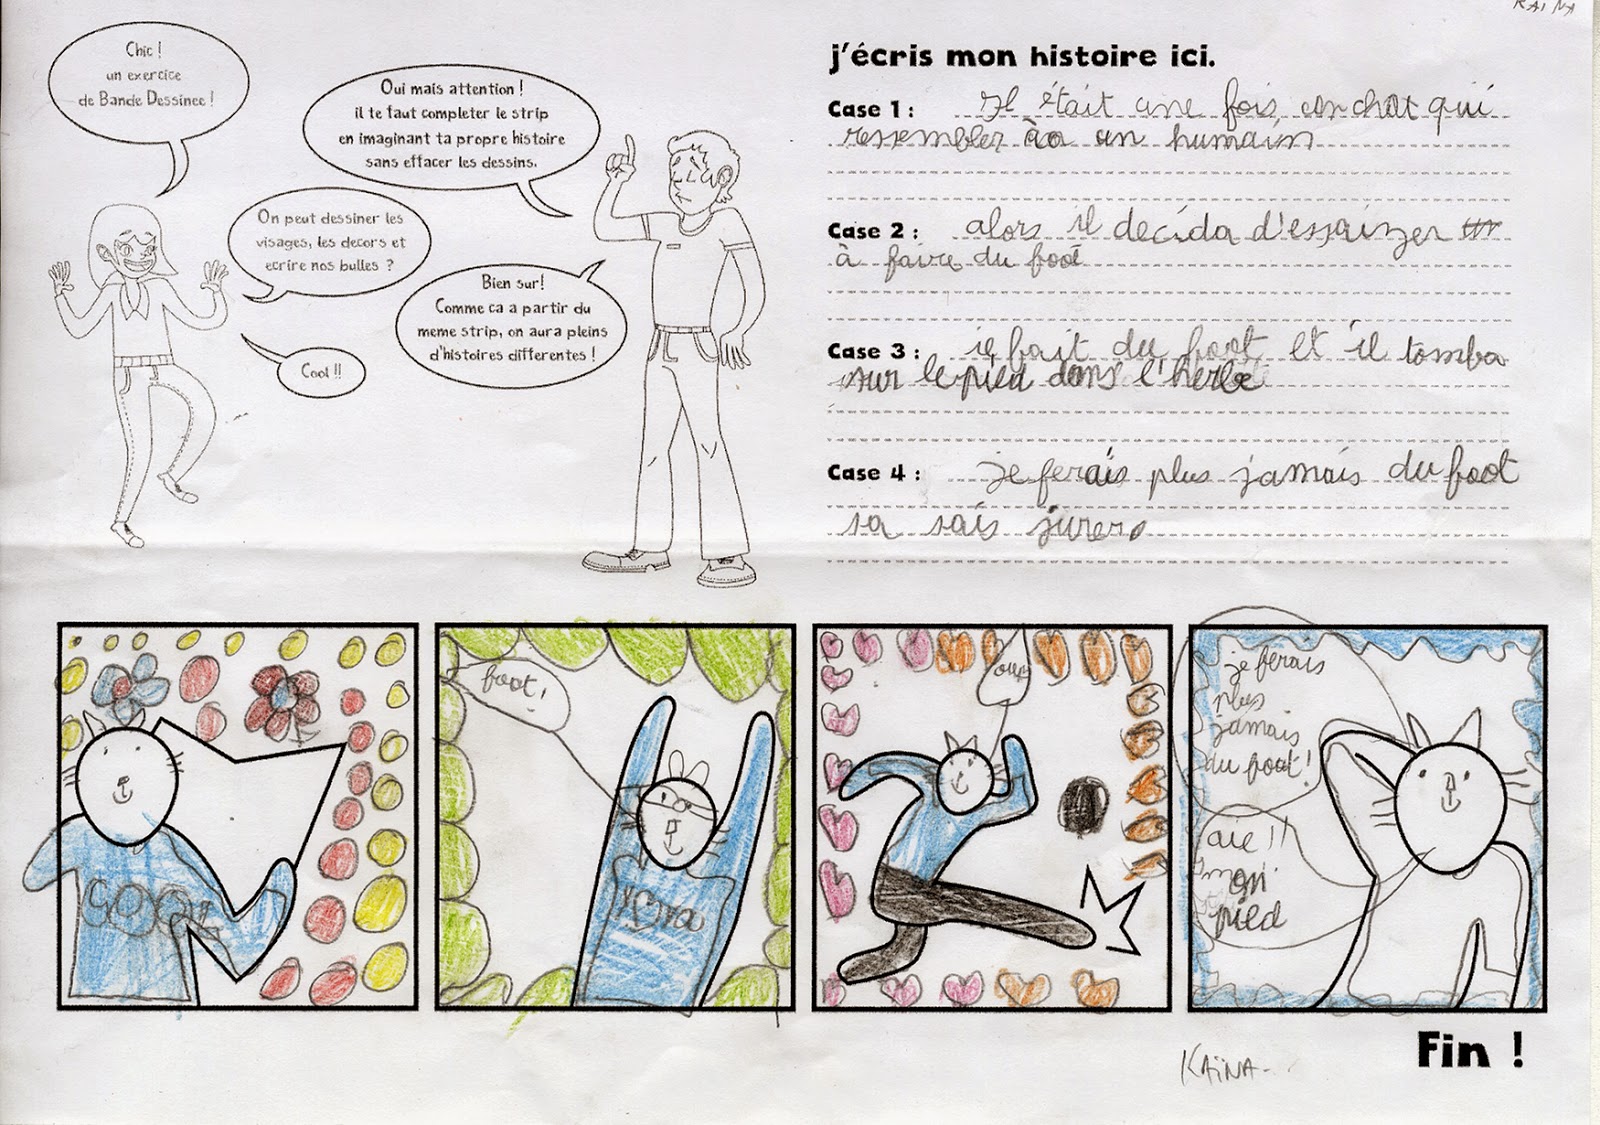 KAINA
Chic !
un exercice
de Bande Dessinee !
Oui mais attention !
il te faut completer le strip
en imaginant ta propre histoire
sans effacer les dessins.
On peut dessiner les
visages, les decors et
ecrire nos bulles ?
Bien sur!
Comme ca a partir du
meme strip, on aura pleins
d'histoires differentes !
Cool !!
j'écris mon histoire ici.
Case 1 : Il était une fois un chat qui
ressembler à un humain
Case 2 : alors il decida d'essaizer
à faire du foot
Case 3 : ie fait du foot et il tomba
sur le pied dans l'herbe
Case 4 : je ferais plus jamais du foot
sa sais jurer.
GOOL
foot!
je ferais
plus
jamais
du foot!
aie !!
mon
pied
Fin !
KAÏNA-